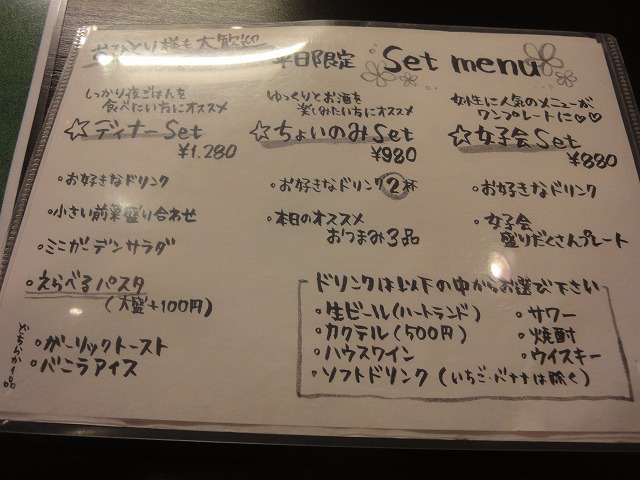 おひとり様も大歓迎
平日限定 Set menu
しっかり夜ごはんを
食べたい方にオススメ
☆ディナーSet
¥1.280
・お好きなドリンク
・小さい前菜盛り合わせ
・ミニガーデンサラダ
・えらべるパスタ
(大盛+100円)
どちらか1品
・ガーリックトースト
・バニラアイス
ゆっくりとお酒を
楽しみたい方にオススメ
☆ちょいのみSet
¥980
・お好きなドリンク2杯
・本日のオススメ
おつまみ3品
女性に人気のメニューが
ワンプレートに♡♡
☆女子会Set
¥880
・お好きなドリンク
・女子会
盛りだくさんプレート
ドリンクは以下の中からお選び下さい
・生ビール(ハートランド)
・カクテル(500円)
・ハウスワイン
・ソフトドリンク(いちご・バナナは除く)
・サワー
・焼酎
・ウイスキー